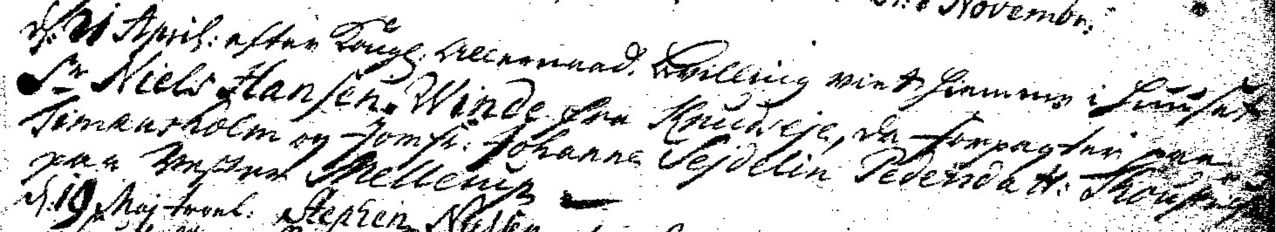 Novembr:
d. 21 April: efter Kongl. Allernaad. Bevilling viet hiemme i Huuset
Sr Niels Hansen Winde fra Knudseje, da forpagter paa
Timansholm og Jomfr: Johanna Sejdelin Pedersdatt:
paa Vester Thellerup
d. 19 Maj trol: Stephen